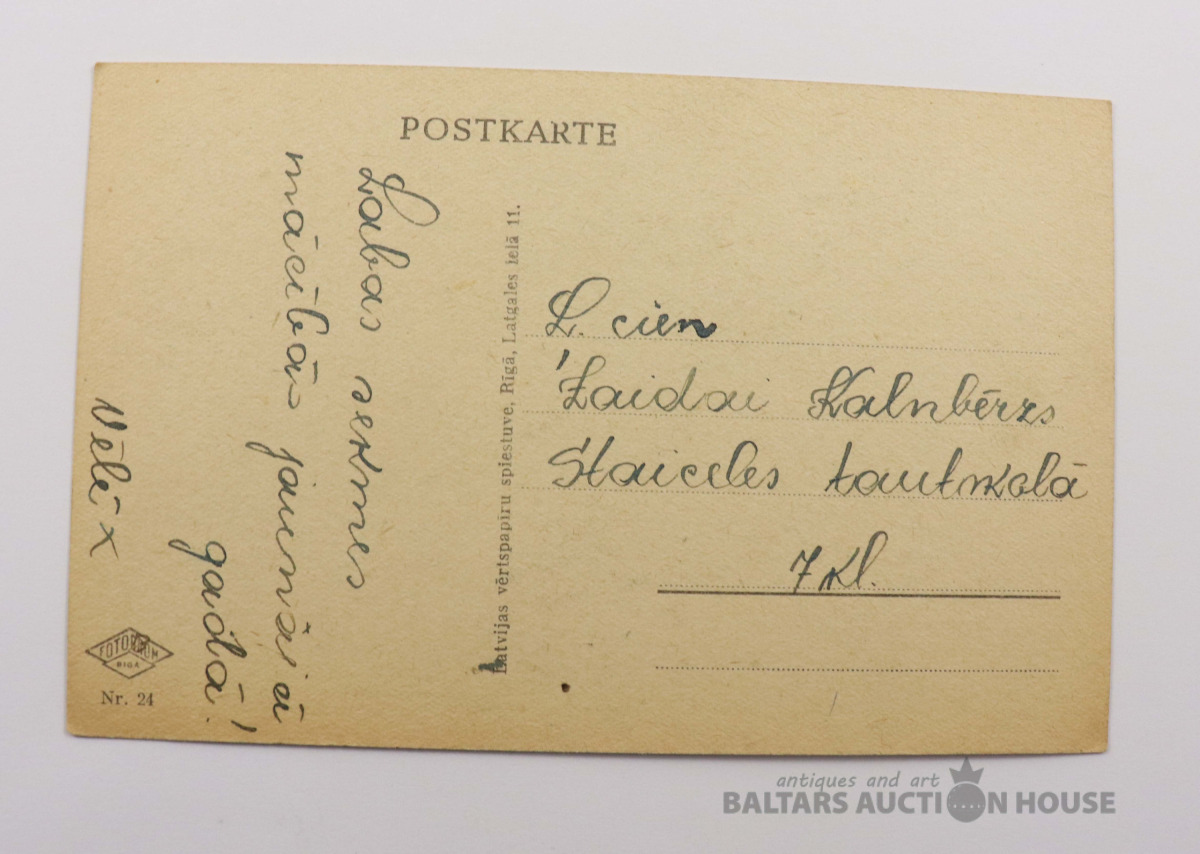 POSTKARTE
Labas sekmes
mācībās jaunajā
gadā!
Vēlē X
FOTO
RIGA
Nr. 24
Latvijas vērtspapīru spiestuve, Rīgā, Latgales ielā 11.
L. cien
Zaidai Kalnbērzs
Staiceles tautskolā
7 kl.
antiques and art
BALTARS AUCTION HOUSE